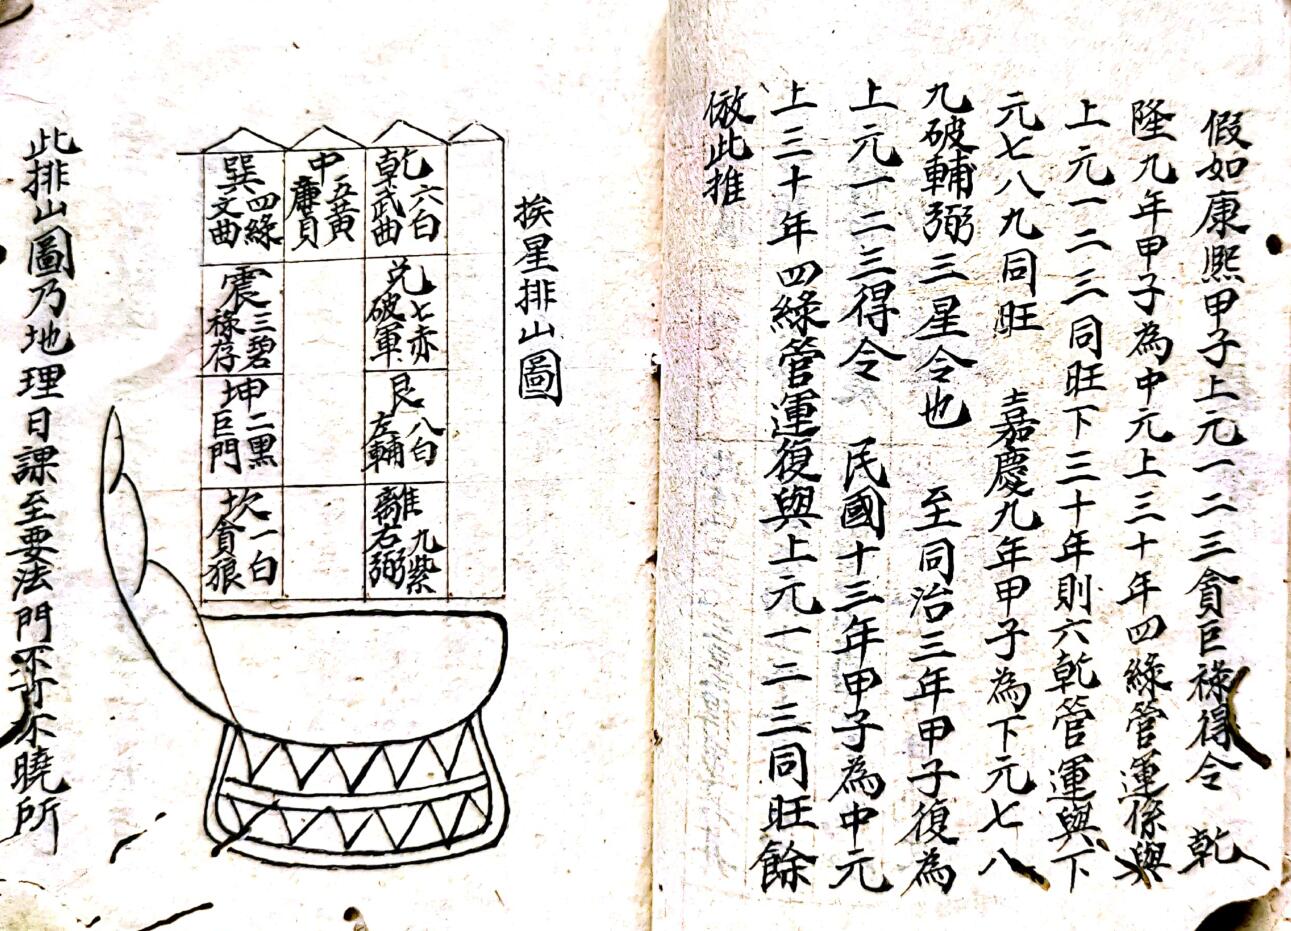 假如康熙甲子上元一二三貪巨祿得令　乾
隆九年甲子為中元上三十年四綠管運係與
上元一二三同旺下三十年則六乾管運與下
元七八九同旺　嘉慶九年甲子為下元七八
九破輔弼三星令也　至同治三年甲子復為
上元一二三得令　民國十三年甲子為中元
上三十年四綠管運復與上元一二三同旺餘
倣此推
挨星排山圖
乾六白武曲
兌七赤破軍
艮八白左輔
離九紫右弼
中五黃廉貞
巽四綠文曲
震三碧祿存
坤二黑巨門
坎一白貪狼
此排山圖乃地理日課至要法門不可不曉所